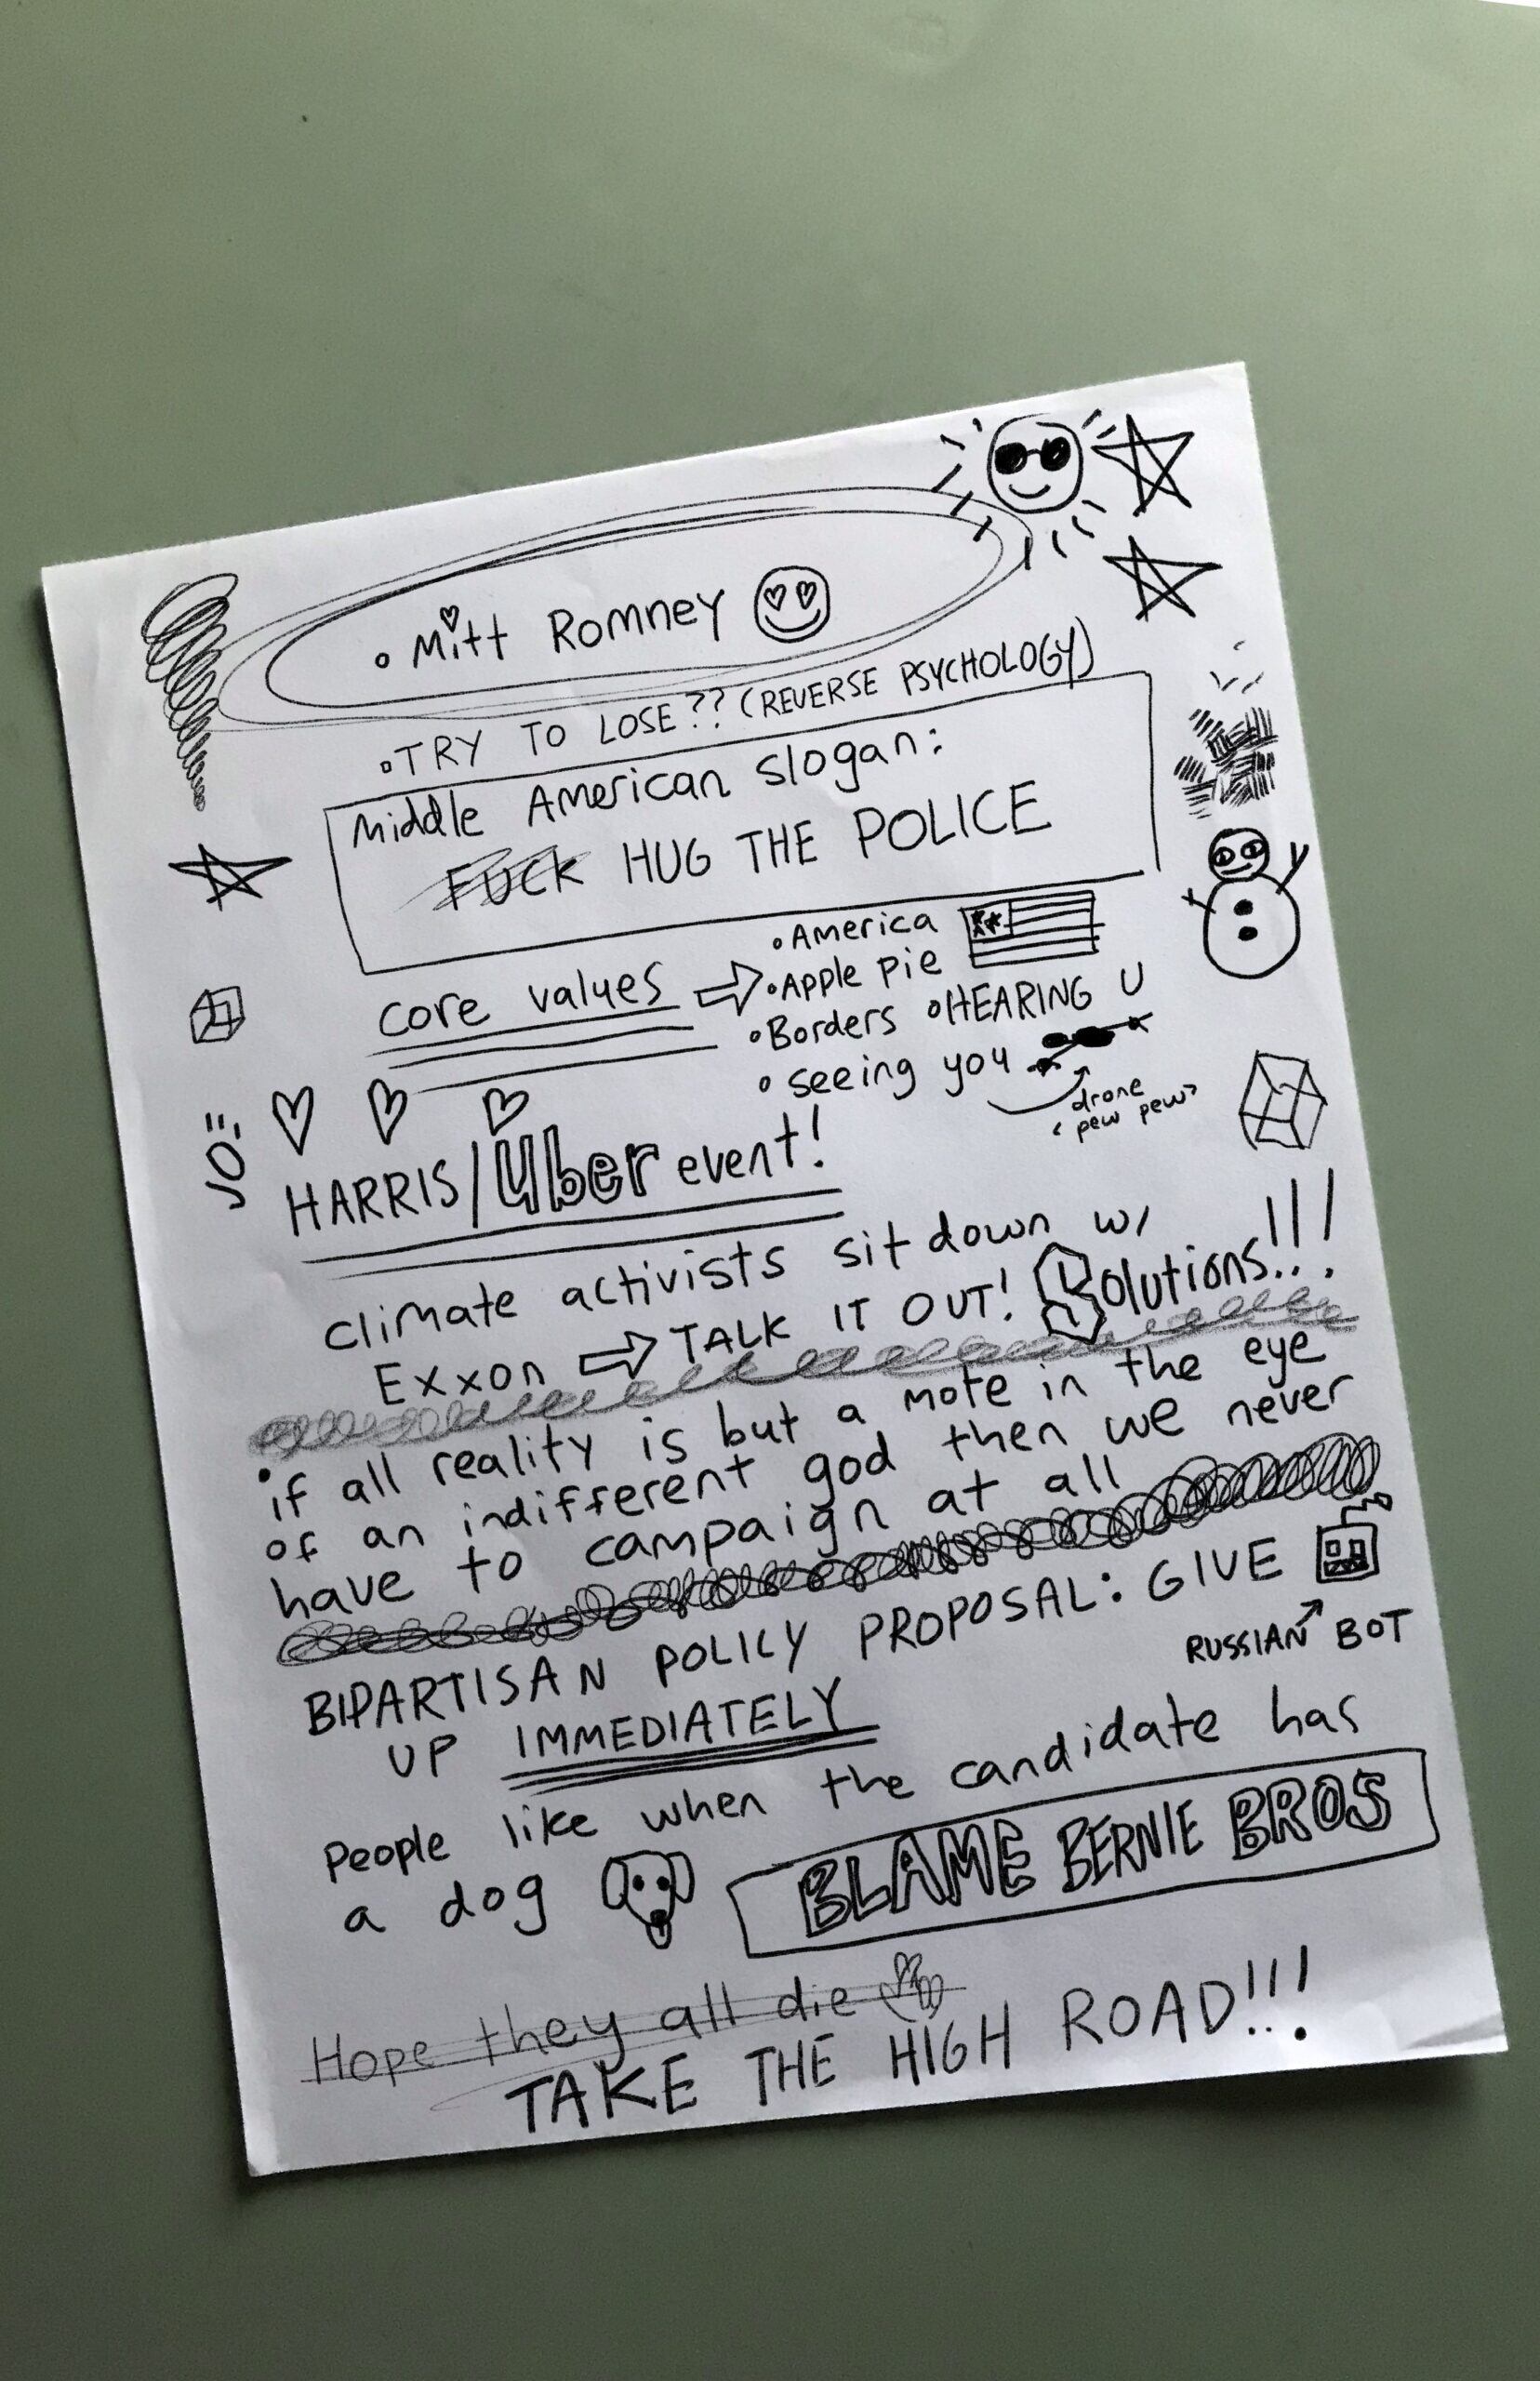 • Mitt Romney
• TRY TO LOSE?? (REVERSE PSYCHOLOGY)
Middle American slogan:
FUCK HUG THE POLICE
core values
• America
• Apple pie
• Borders • HEARING U
• seeing you
drone
pew pew
HARRIS/Uber event!
climate activists sit down w/
Exxon ⇨ TALK IT OUT! Solutions!!!
• if all reality is but a mote in the eye
of an indifferent god then we never
have to campaign at all
BIPARTISAN POLICY PROPOSAL: GIVE
RUSSIAN BOT
UP IMMEDIATELY
People like when the candidate has
a dog
BLAME BERNIE BROS
Hope they all die
TAKE THE HIGH ROAD!!!